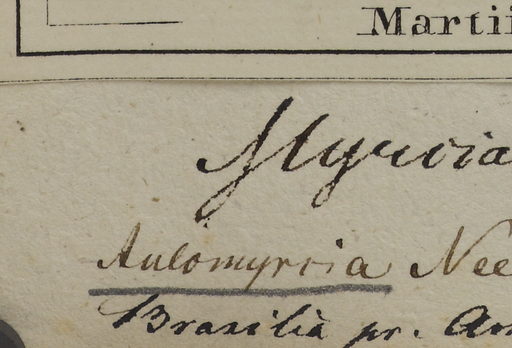 Martii
Myrcia
Aulomyrcia Nee
Brasilia pr.